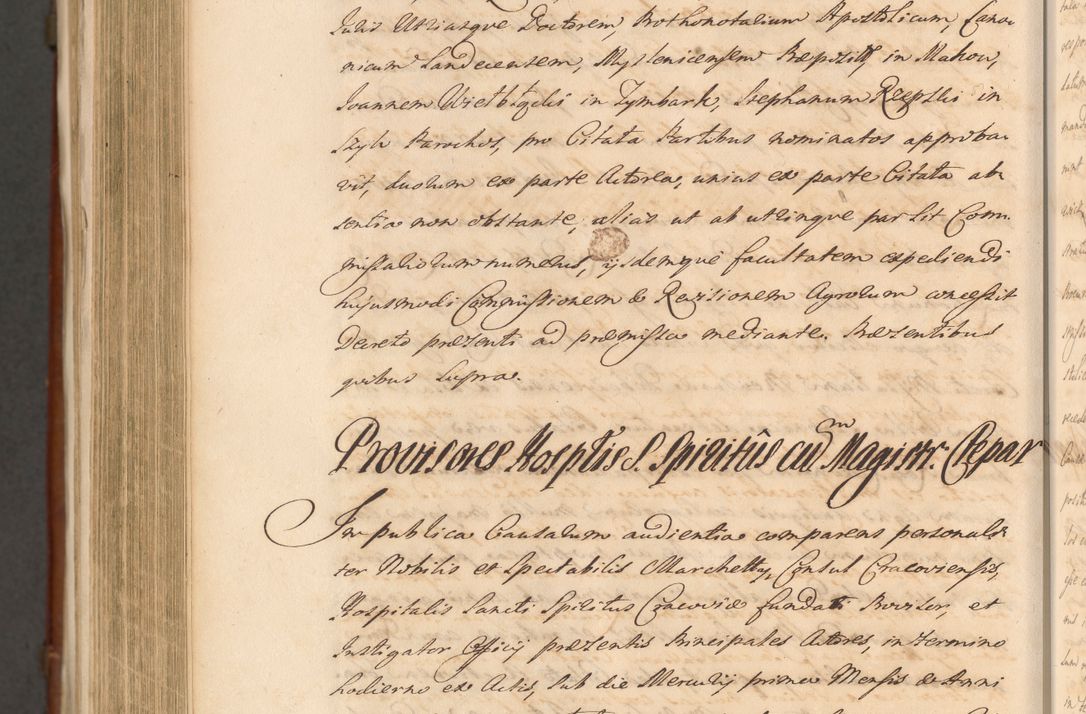 Juris Utriusque Doctorem, Prothonotarium Apostolicum, Cano-
nicum Sandecensem, Myslenicensem Præpositū, in Makow,
Joannem in Tymbark, Stephanum in
Parochos, pro Citata Partibus nominatos approba-
vit, duorum ex parte Actorea, unius ex parte Citata ab-
sentia non obstante, alias ut ab utrinque par sit Com-
missariorum numerus, ijsdemque facultatem expediendi
hujusmodi Commissionem & Revisionem Agrorum concessit
Decreto præsenti ad præmissa mediante. Præsentibus
quibus supra.
Provisores Hosptis S. Spiritûs cum Magistr. Crepar
In publica Causarum audientia comparens personali-
ter Nobilis et Spectabilis Marchetty, Consul Cracoviensis,
Hospitalis Sancti Spiritus Cracoviæ fundati Provisor, et
Instigator Officij præsentis Principales Actores, in termino
hodierno ex Actis, sub die Mercurij prima Mensis & Anni